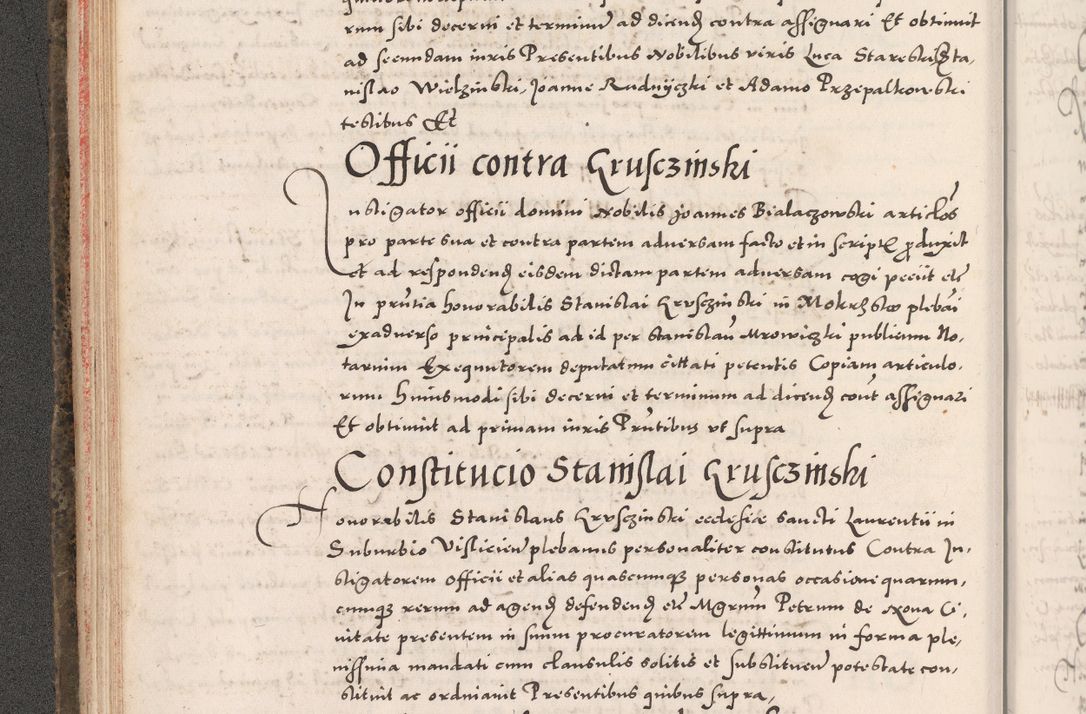 rum sibi decerni et terminum ad dicend contra assignari Et obtinuit
ad secundam iuris Presentibus Nobilibus viris Luca Stareski Sta,
nislao Wielzinski, Joanne Rudnyczki et Adamo Przepalkowski
testibus Et
Officii contra Grusczinski
Instigator officii domini Nobilis Joannes Bialaczowski articlos
pro parte sua et contra partem adversam facto et in script produxit
et ad respondend eisdem dictam partem adversam cogi peciit etc
In pntia honorabilis Stanislai Grusczinski in Mokrzsko plebani
ex adverso principalis ad id per Stanislau Mrowiczki publicum No,
tarium Exequutorem deputatum cittati petentis Copiam articulo,
rum huiusmodi sibi decerni et terminum ad dicend cont assignari
Et obtinuit ad primam iuris Pntibus ut supra
Constitucio Stanislai Grusczinski
Honorabilis Stanislaus Grusczinski ecclesiae sancti Laurentii in
Suburbio Vislicien plebanus personaliter constitutus Contra In,
stigatorem officii et alias quascumque personas occasione quarum,
cumque rerum ad agend defendend etc Mgrum Petrum de Nova Ci,
vitate presentem in suum procuratorem legittimum in forma ple,
nissima mandati cum clausulis solitis et substituen potestate con,
stituit ac ordinavit Presentibus quibus supra,